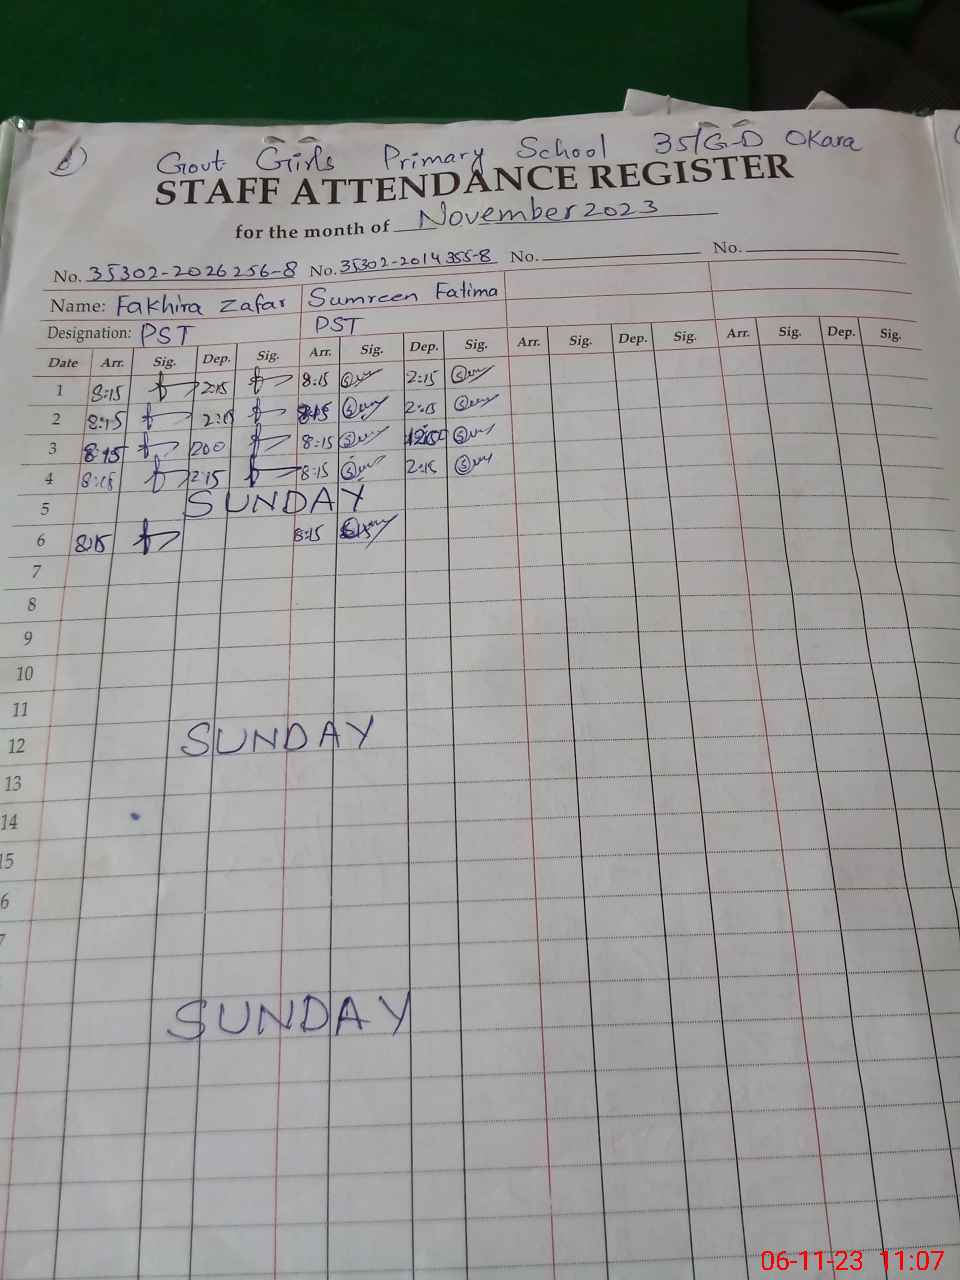 Govt Girls Primary School 35/G-D Okara
STAFF ATTENDANCE REGISTER
for the month of November 2023
No. 35302-2026256-8 No. 35302-2014355-8 No. No.
Name: Fakhira Zafar Sumreen Fatima
Designation: PST PST
Date Arr. Sig. Dep. Sig. Arr. Sig. Dep. Sig. Arr. Sig. Dep. Sig. Arr. Sig. Dep. Sig.
1 8:15 2:15 8:15 2:15
2 8:15 2:15 8:15 2:15
3 8:15 200 8:15
4 8:15 2:15 8:15 2:15
5 SUNDAY
6 8:15 8:15
7
8
9
10
11
12 SUNDAY
13
14
15
6
7
SUNDAY
06-11-23 11:07